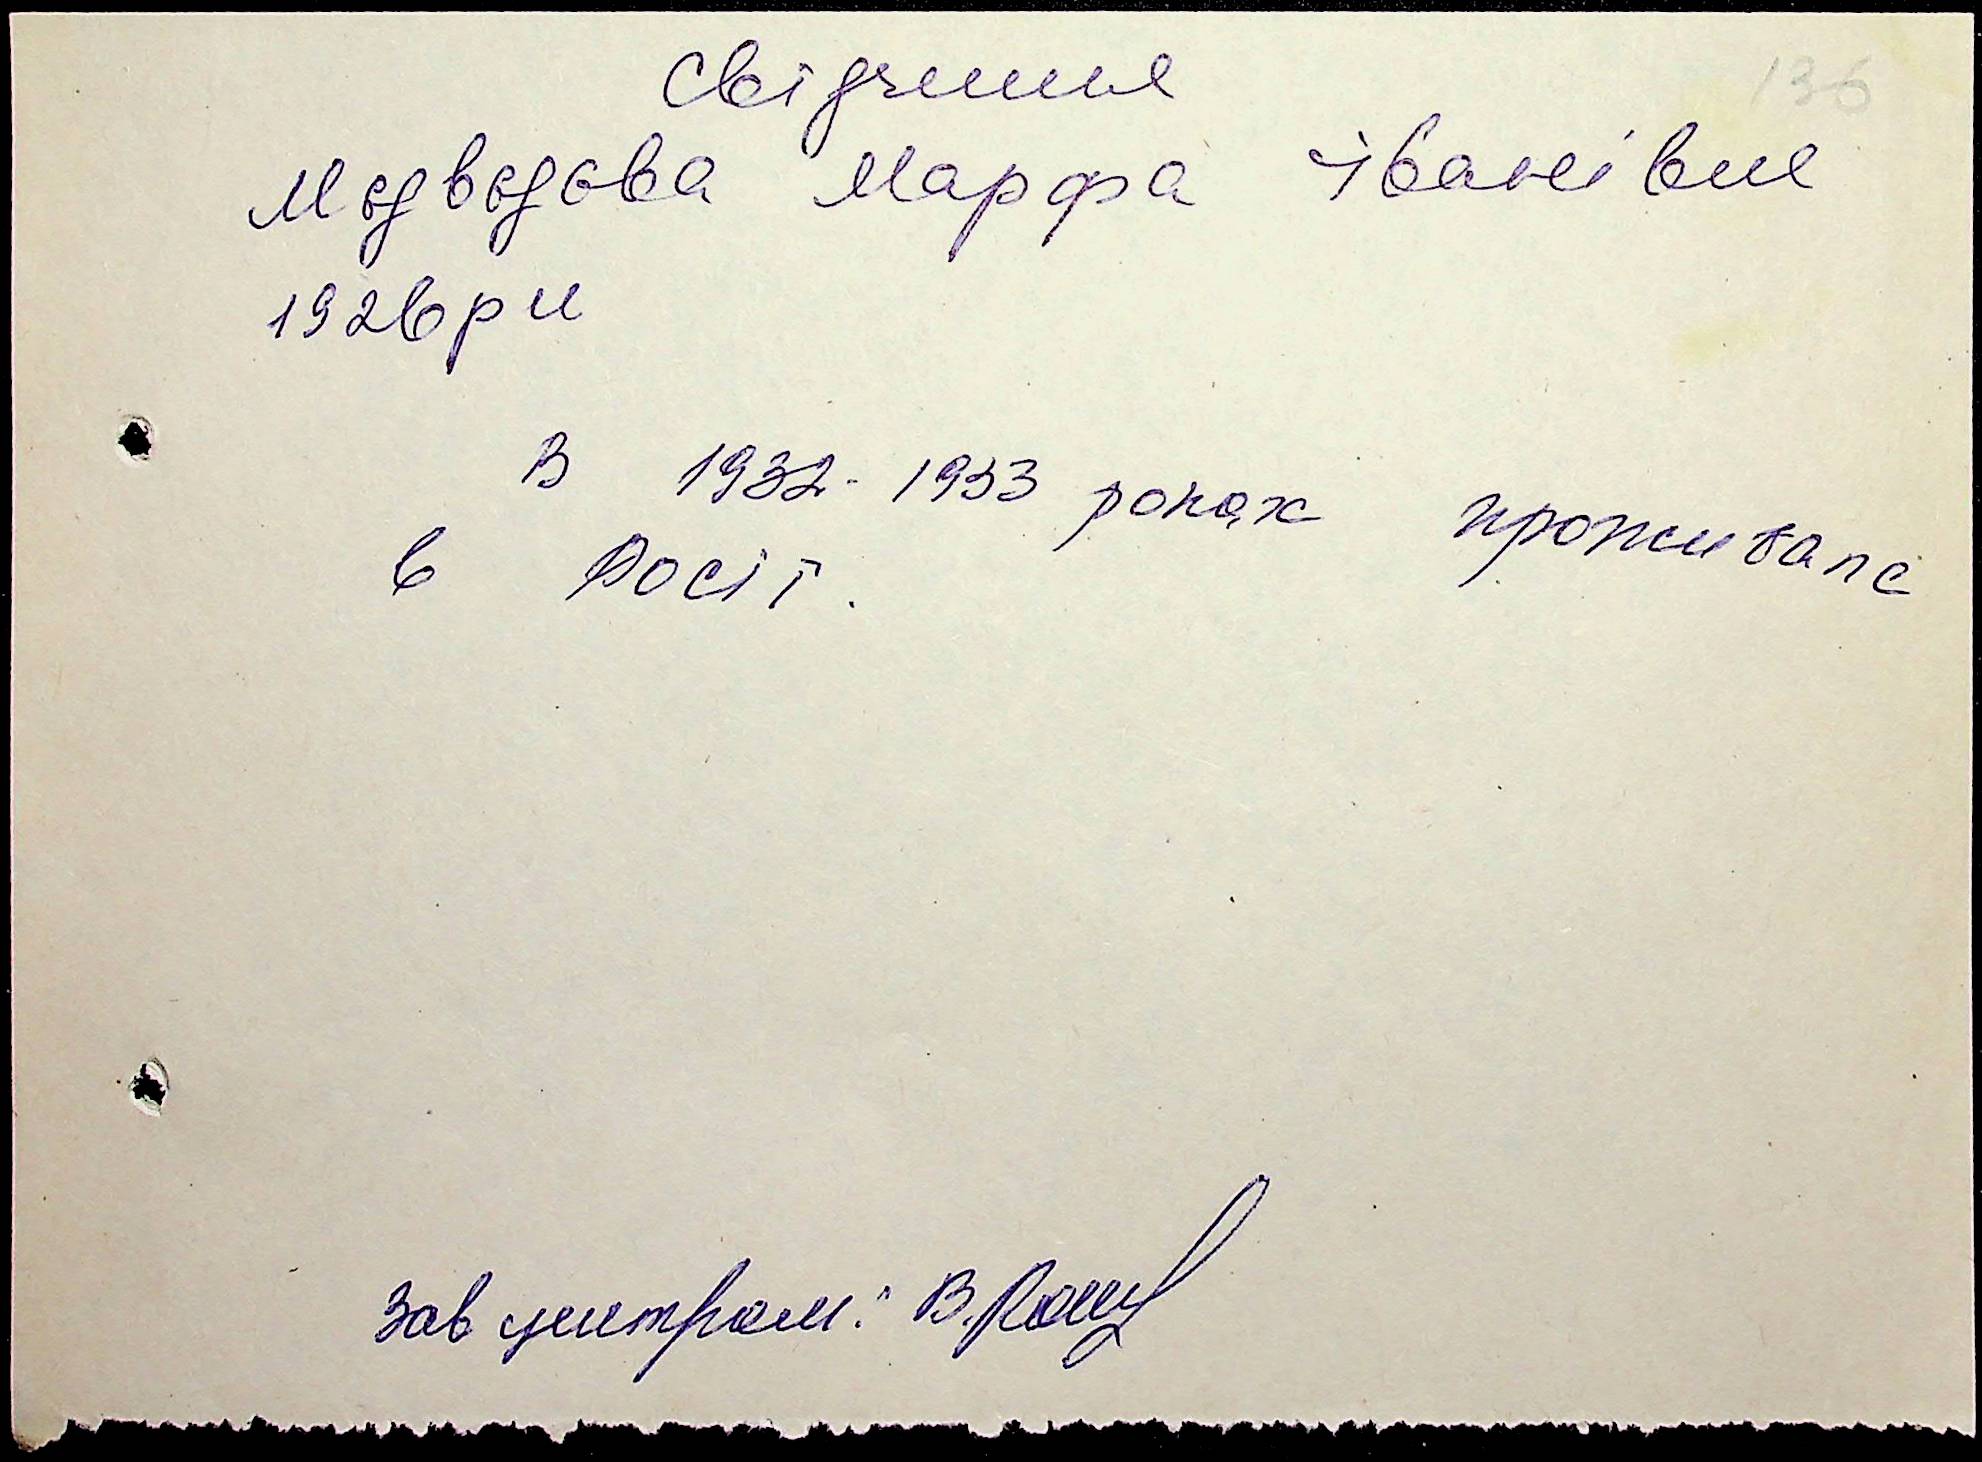 136
Свідчення
Медведєва Марфа Іванівна
1926 р н
В 1932-1933 роках проживала
в Росії.
Зав центром: В.